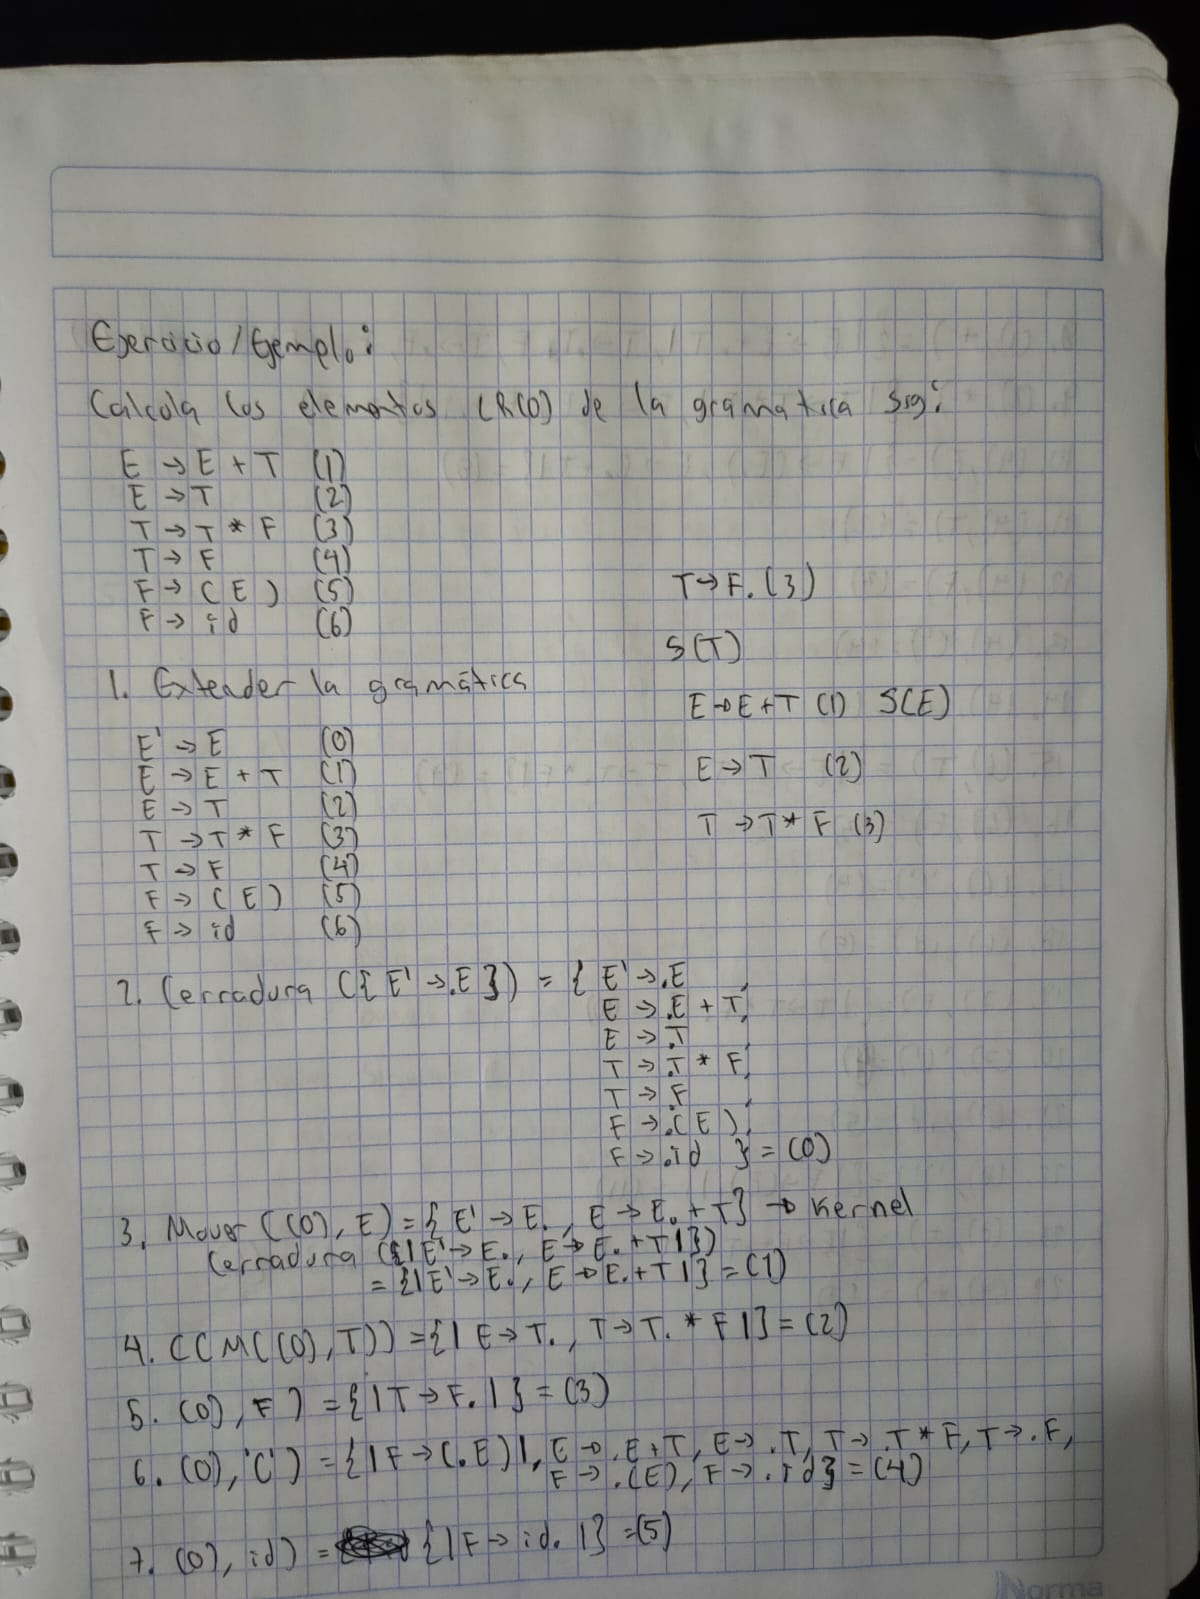 Ejercicio/Ejemplo:
Calcula los elementos LR(0) de la gramatica sig:
E → E + T (1)
E → T (2)
T → T * F (3)
T → F (4)
F → ( E ) (5)
F → id (6)
T → F. (3)
S(T)
E → E + T (1) S(E)
E → T (2)
T → T * F (3)
1. Extender la gramática
E' → E (0)
E → E + T (1)
E → T (2)
T → T * F (3)
T → F (4)
F → ( E ) (5)
F → id (6)
2. Cerradura ({ E' → .E }) = { E' → .E ,
E → .E + T,
E → .T ,
T → .T * F,
T → .F ,
F → .( E ),
F → .id } = (0)
3. Mover ((0), E) = { E' → E. , E → E. + T} → Kernel
Cerradura ({| E' → E. , E → E. + T |})
= {| E' → E. , E → E. + T |} = (1)
4. C(M((0), T)) = {| E → T. , T → T. * F |} = (2)
5. (0), F ) = {| T → F. |} = (3)
6. (0), '(' ) = {| F → (.E) |, E → .E + T, E → .T, T → .T * F, T → .F,
F → .(E), F → .id} = (4)
7. (0), id) = {| F → id. |} = (5)
Norma